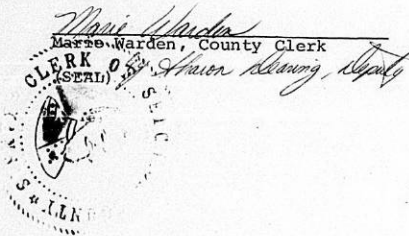 Marie Warden
Marie Warden, County Clerk
(SEAL) By Sharon Dearing, Deputy
CLERK OF